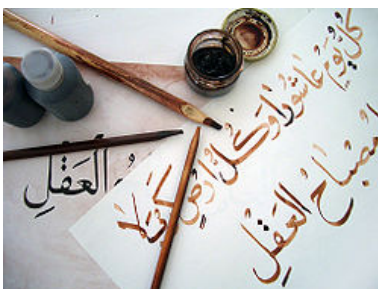 كلُّ يَومٍ عاشُورا وَكُلُّ ارضٍ كَربَلا
مِصبَاحُ العَقلِ
العَقلِ